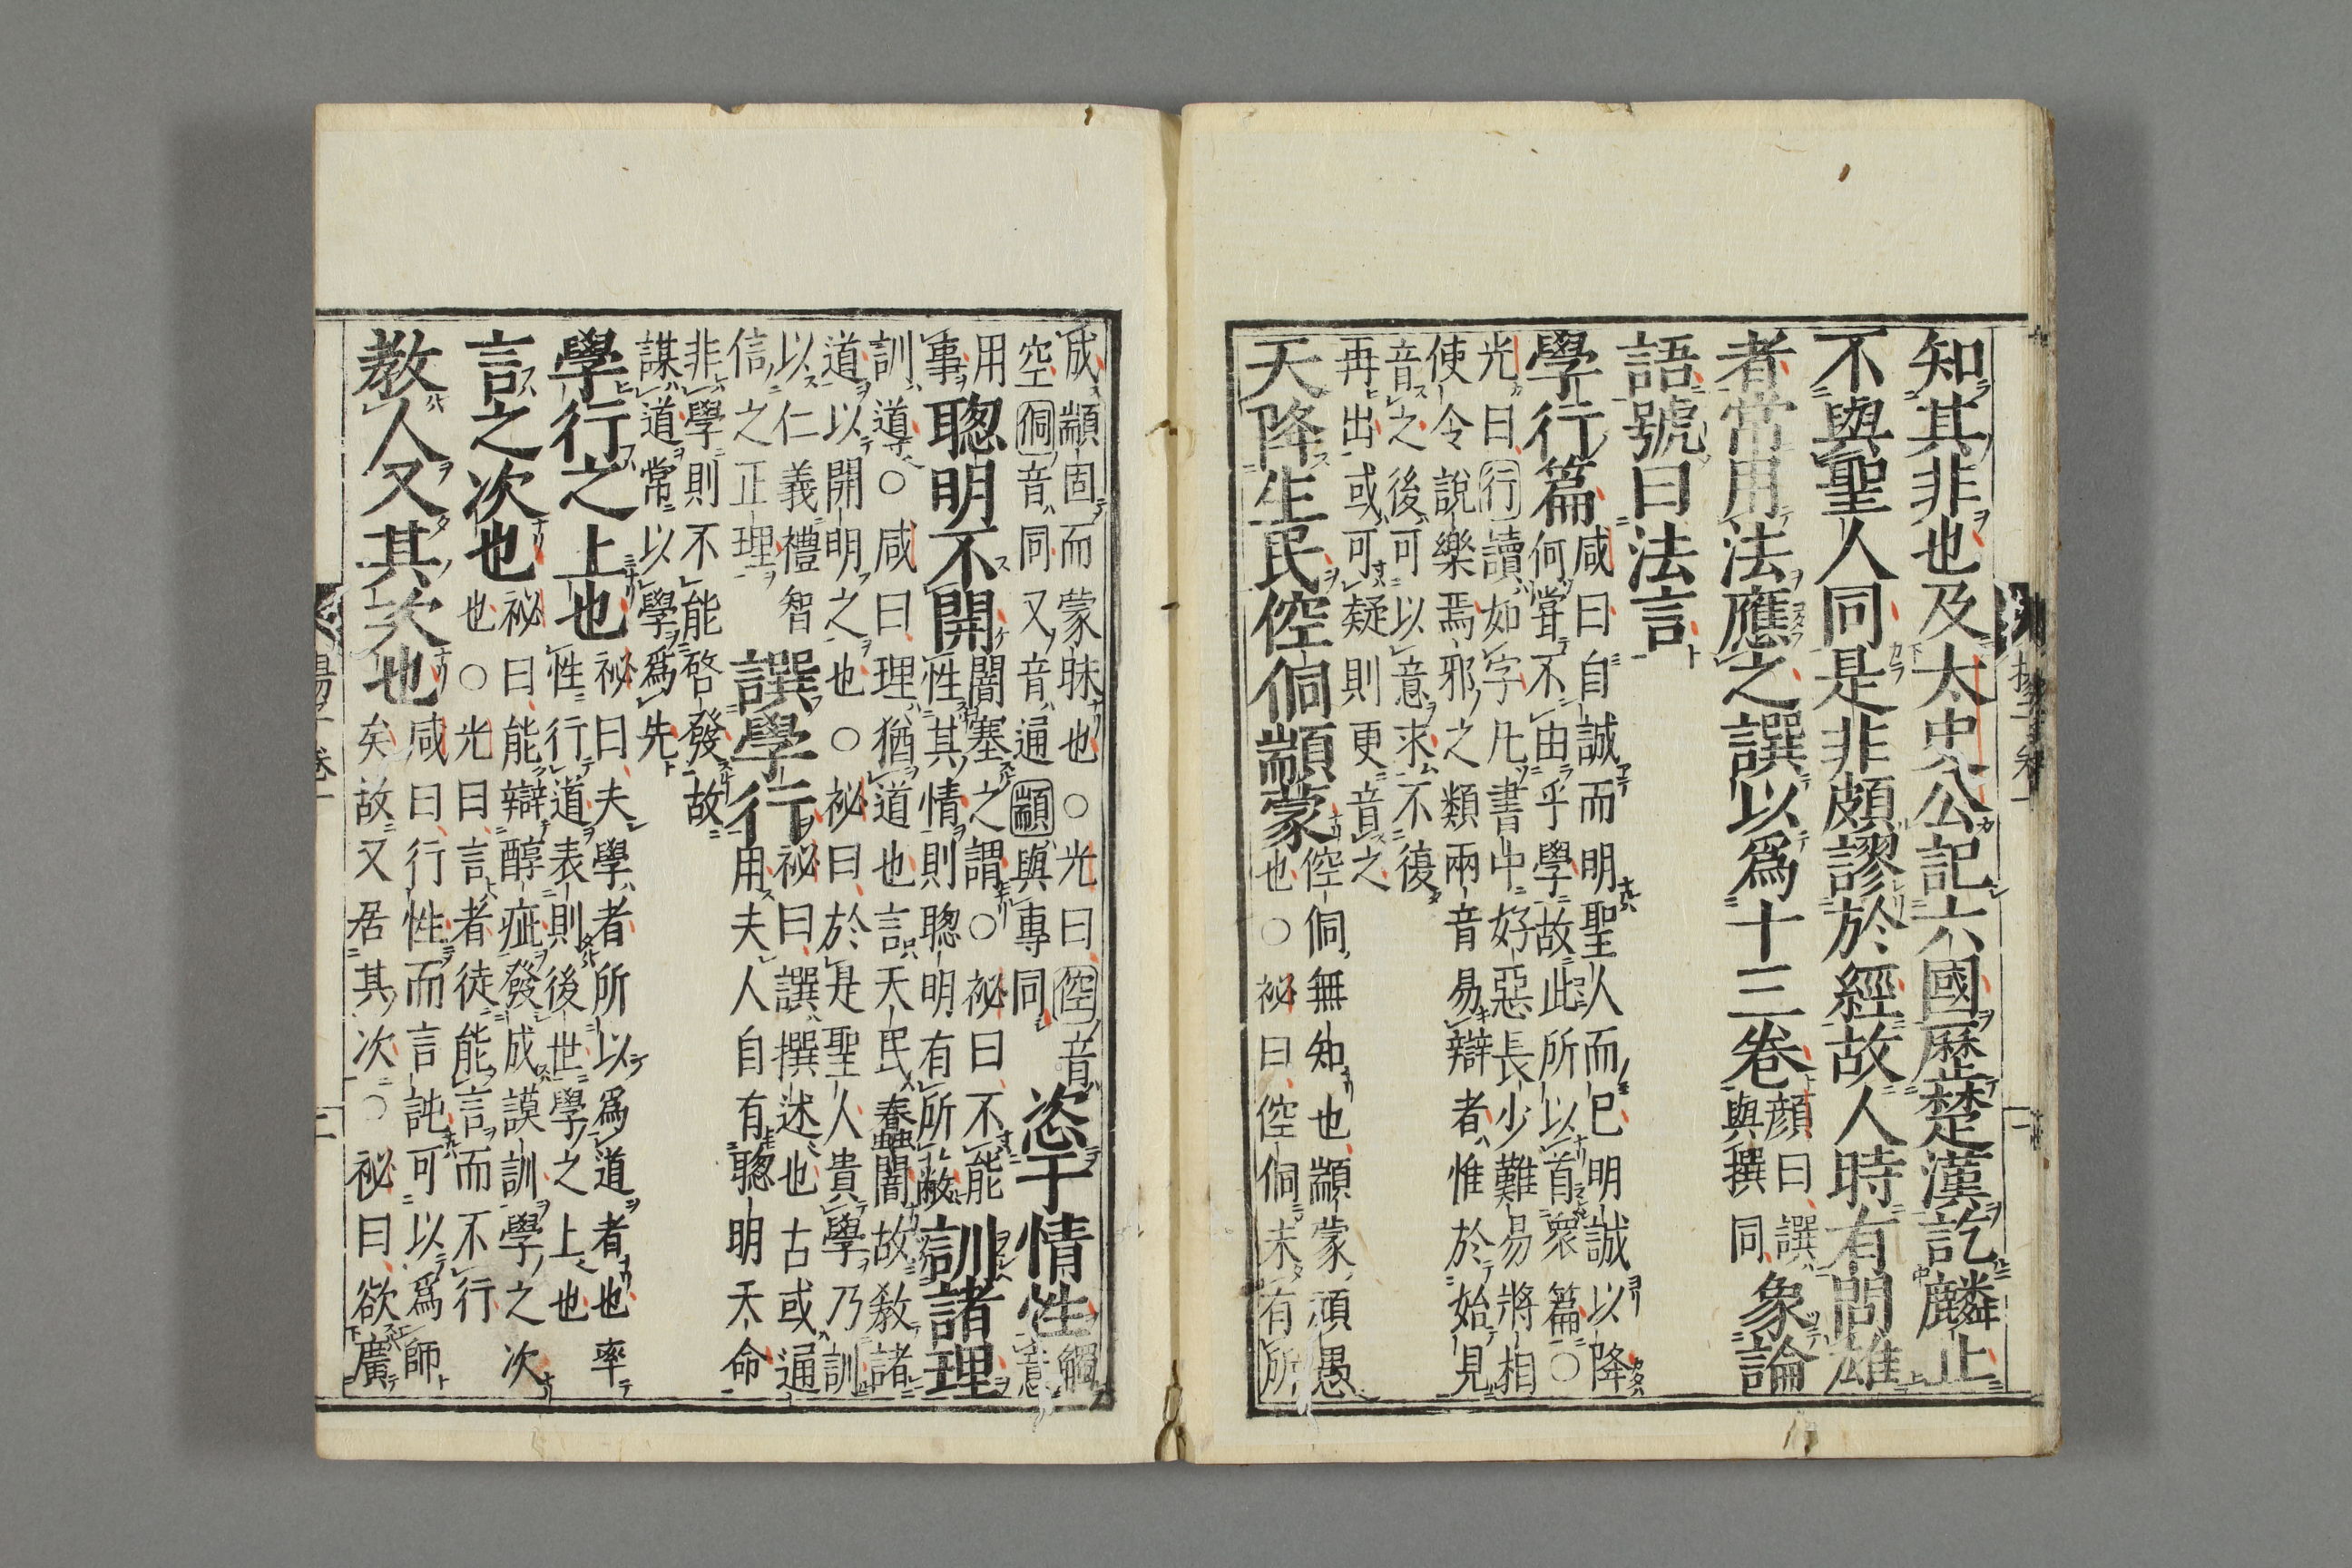 知其非也及太史公記六國歷楚漢訖麟止
不與聖人同是非頗謬於經故人時有問雄
者常用法應之譔以爲十三卷顔曰譔與撰同象論
語號曰法言
學行篇咸曰自誠而明聖人而已明誠以降
何甞不由乎學故此所以首衆篇○
光曰行讀如字凡書中好惡長少難易將相
使令說樂焉邪之類兩音易辯者惟於始見
音之後可以意求不復
再出或可疑則更音之
天降生民倥侗顓蒙倥侗無知也顓蒙頑愚
也○祕曰倥侗未有所
成顓固而蒙昧也○光曰倥音
空侗音同又音通顓與專同恣于情性觸意
用事聰明不開闇塞之謂○祕曰不能
性其情則聰明有所蔽訓諸理
訓導○咸曰理猶道也言天民蠢闇故教諸
道以開明之也○祕曰於是聖人貴學乃訓
以仁義禮智
信之正理譔學行祕曰譔撰述也古或通
用夫人自有聰明天命
非學則不能啓發故
謀道常以學爲先
學行之上也祕曰夫學者所以爲道者也率
性行道表則後世學之上也
言之次也祕曰能辯醇疵發成謨訓學之次
也○光曰言者徒能言而不行
教人又其次也咸曰行性而言訰可以爲師
矣故又居其次○祕曰欲廣